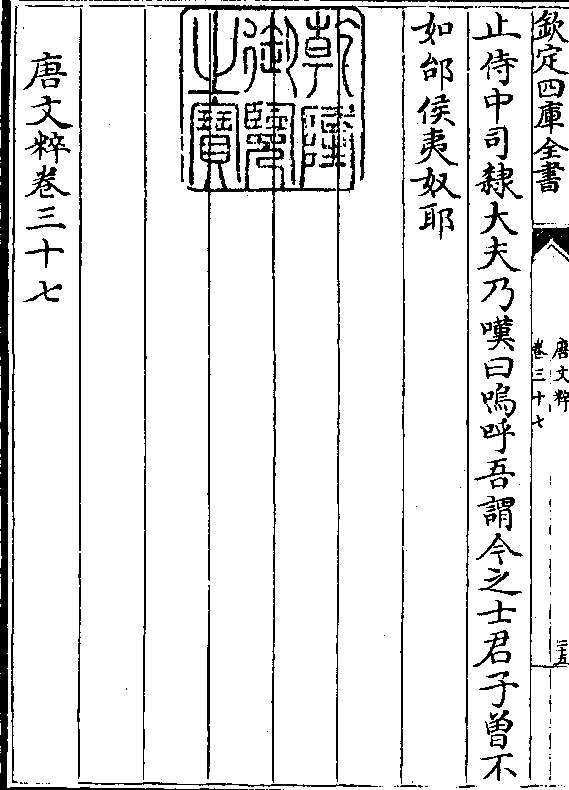 欽定四庫全書
唐文粹
卷三十七
三五
止侍中司隸大夫乃嘆曰嗚呼吾謂今之士君子曾不
如邰侯夷奴耶
乾隆
御覽
之寶
唐文粹卷三十七